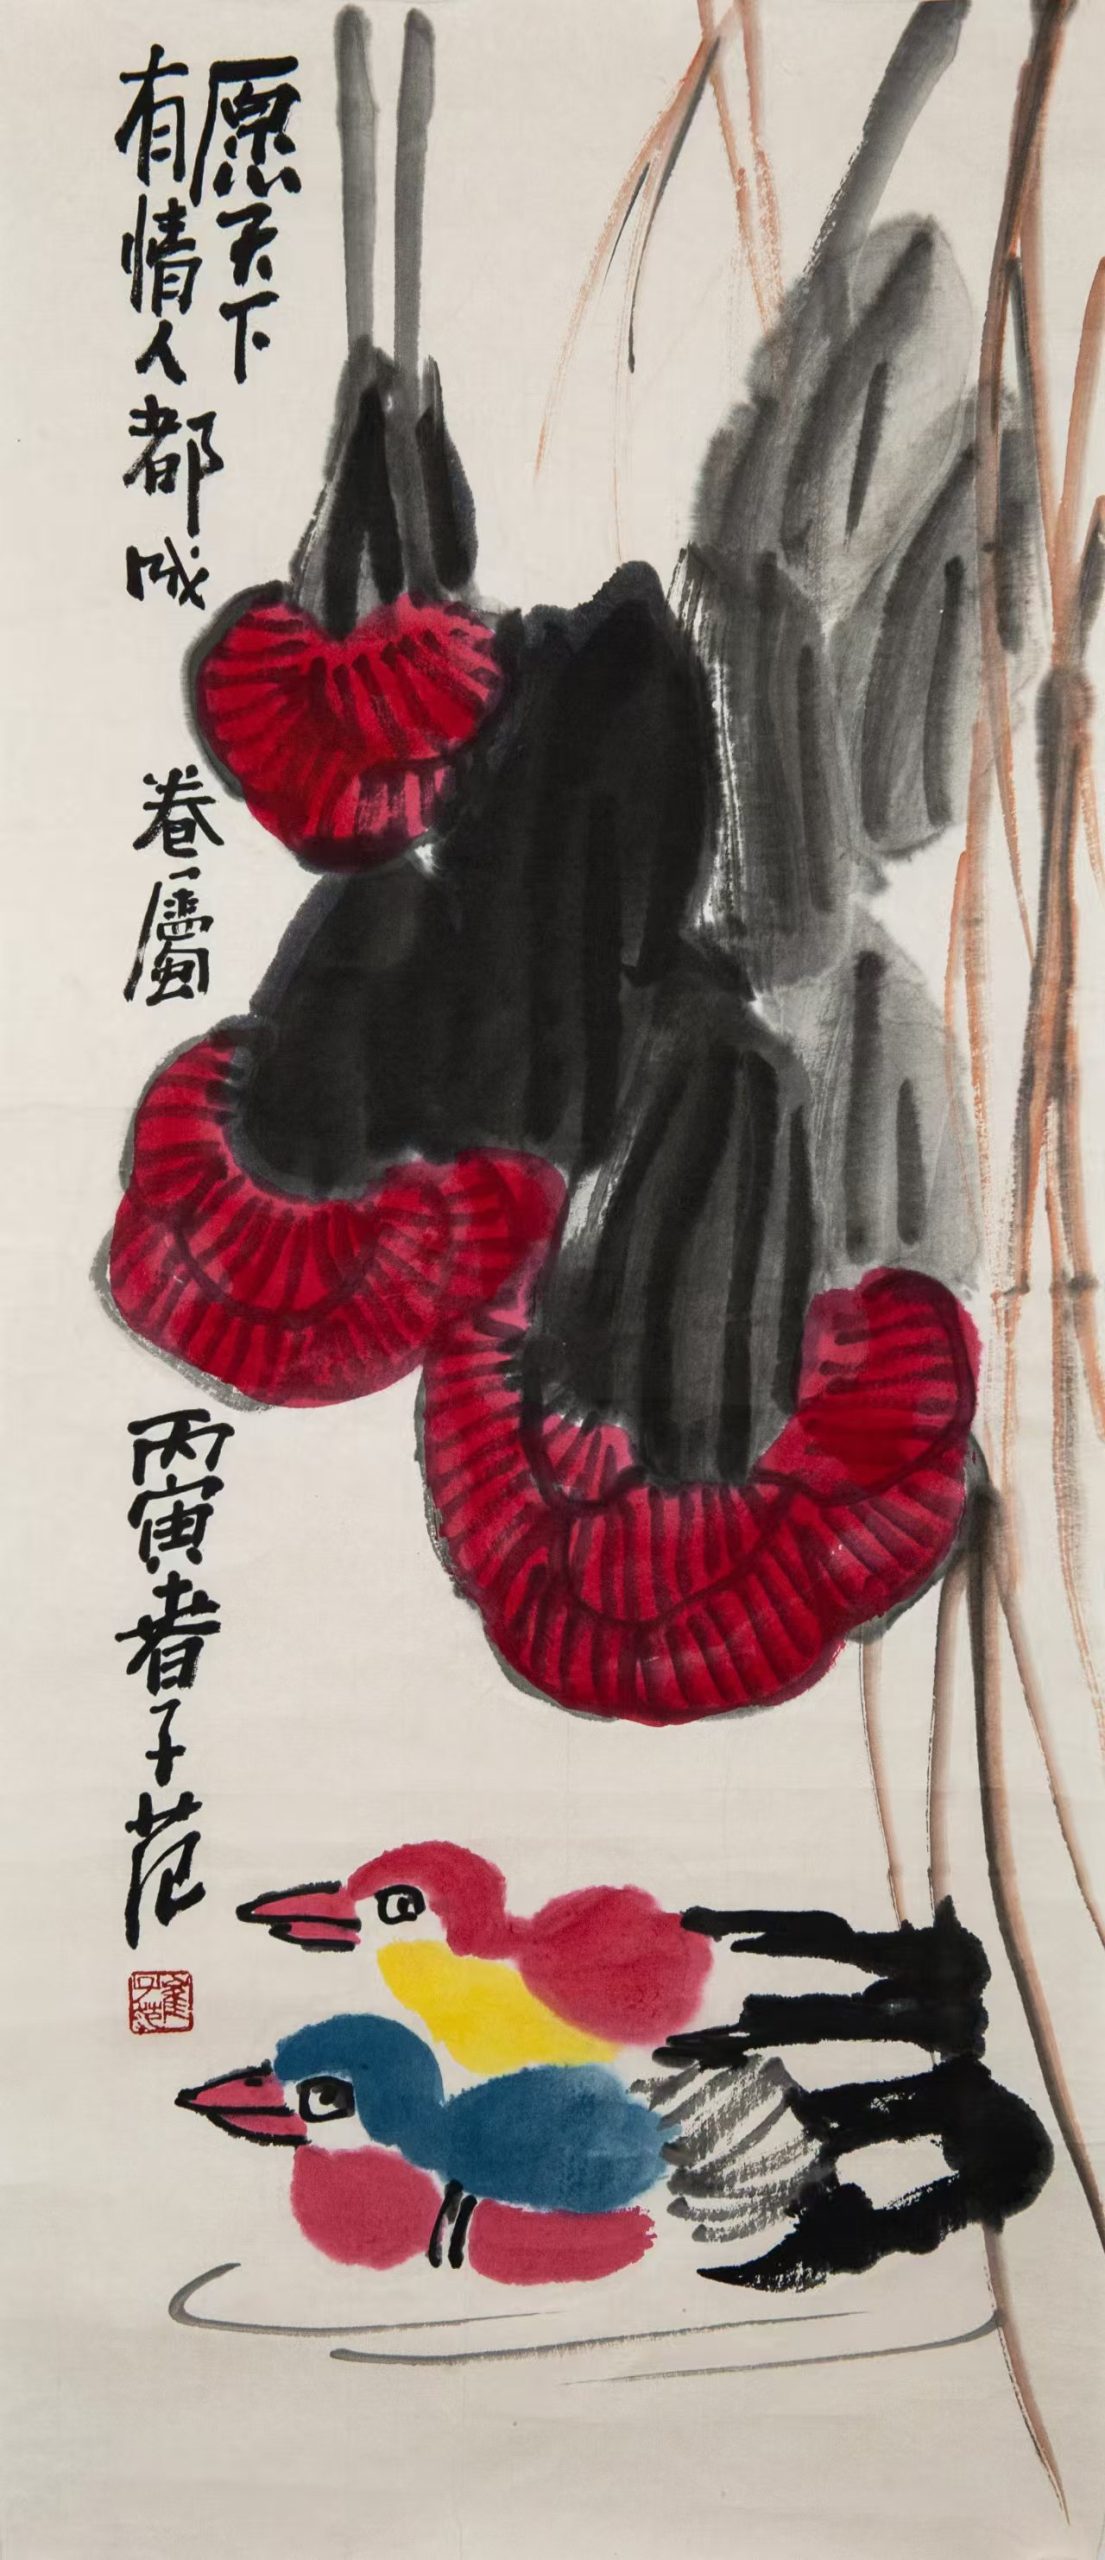 愿天下
有情人都成眷屬 丙寅春子范
崔子范